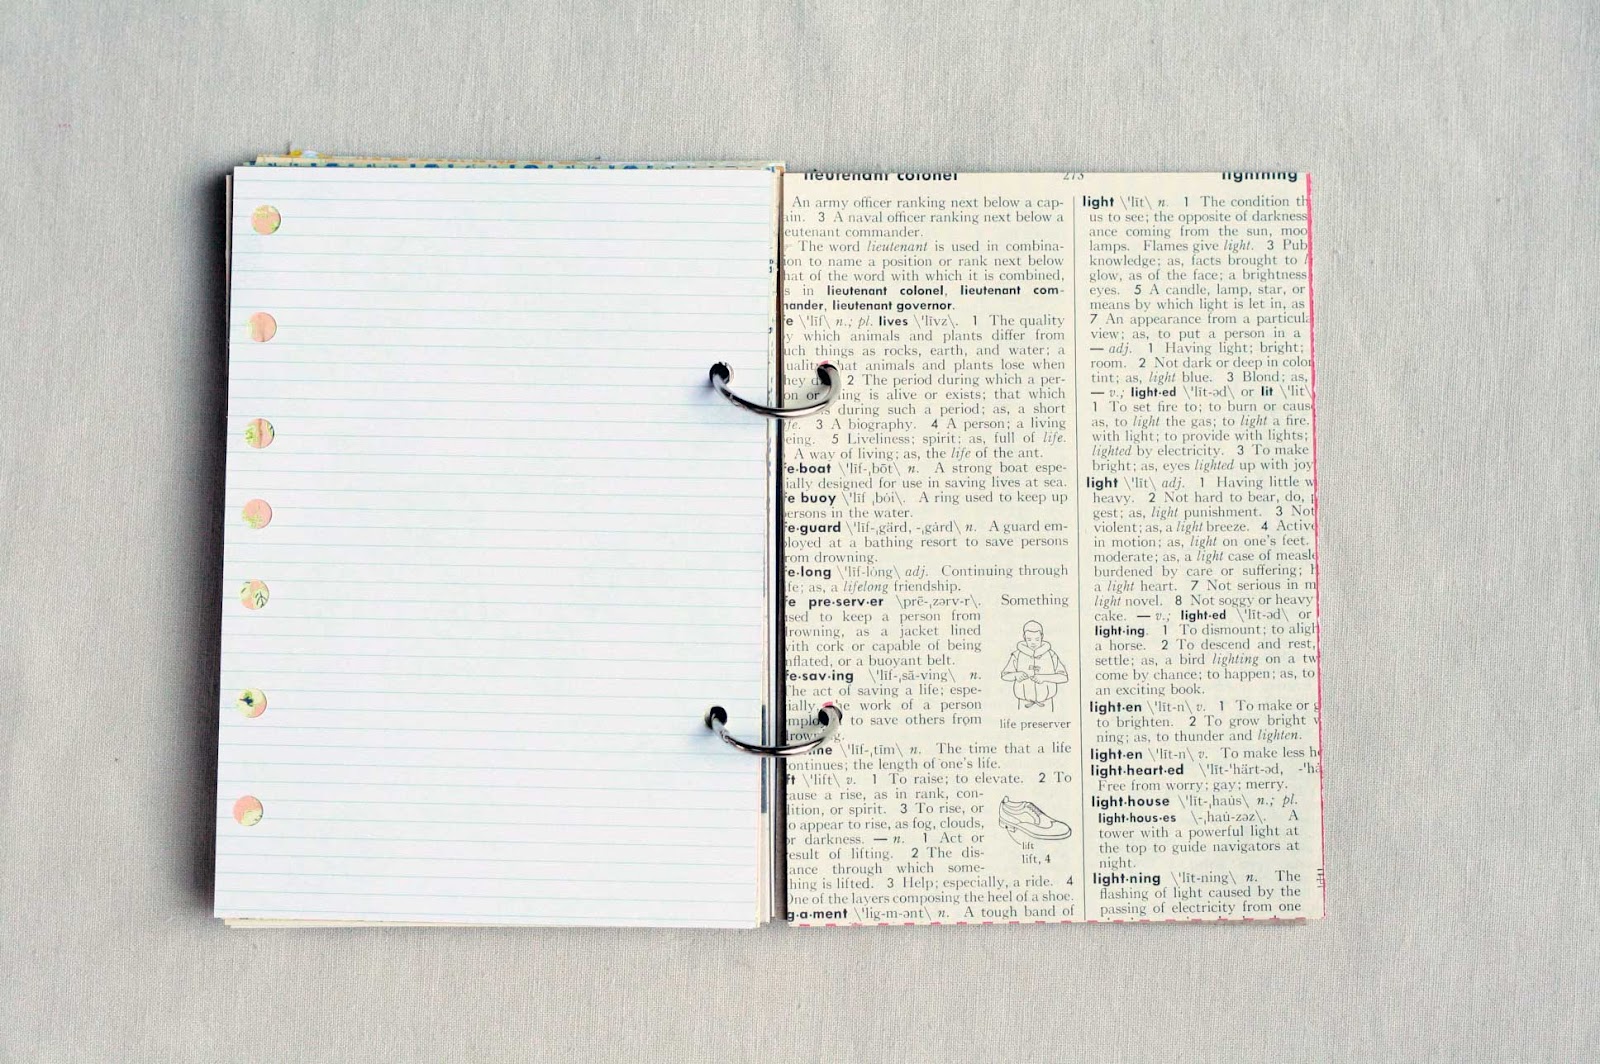 lieutenant colonel 273 lightning
An army officer ranking next below a cap-
ain. 3 A naval officer ranking next below a
eutenant commander.
The word lieutenant is used in combina-
ion to name a position or rank next below
hat of the word with which it is combined,
s in lieutenant colonel, lieutenant com-
mander, lieutenant governor.
fe \'līf\ n.; pl. lives \'līvz\. 1 The quality
y which animals and plants differ from
uch things as rocks, earth, and water; a
ualit hat animals and plants lose when
hey d 2 The period during which a per-
on or ing is alive or exists; that which
s during such a period; as, a short
fe. 3 A biography. 4 A person; a living
eing. 5 Liveliness; spirit; as, full of life.
A way of living; as, the life of the ant.
fe·boat \'līf-ˌbōt\ n. A strong boat espe-
ially designed for use in saving lives at sea.
fe buoy \'līf ˌbȯi\. A ring used to keep up
ersons in the water.
fe·guard \'līf-ˌgärd, -ˌgård\ n. A guard em-
ployed at a bathing resort to save persons
rom drowning.
fe·long \'līf-lȯng\ adj. Continuing through
ife; as, a lifelong friendship.
fe pre·serv·er \prē-ˌzərv-r\. Something
used to keep a person from
drowning, as a jacket lined
with cork or capable of being
nflated, or a buoyant belt.
life preserver
fe·sav·ing \'līf-ˌsā-ving\ n.
The act of saving a life; espe-
cially, he work of a person
emplo to save others from
drown g.
ime \'līf-ˌtīm\ n. The time that a life
continues; the length of one's life.
ft \'lift\ v. 1 To raise; to elevate. 2 To
cause a rise, as in rank, con-
dition, or spirit. 3 To rise, or
to appear to rise, as fog, clouds,
or darkness. — n. 1 Act or
result of lifting. 2 The dis-
tance through which some-
thing is lifted. 3 Help; especially, a ride. 4
One of the layers composing the heel of a shoe.
lift
lift, 4
g·a·ment \'lig-m-ənt\ n. A tough band of
light \'līt\ n. 1 The condition th
us to see; the opposite of darkness
ance coming from the sun, moo
lamps. Flames give light. 3 Pub
knowledge; as, facts brought to l
glow, as of the face; a brightness
eyes. 5 A candle, lamp, star, or
means by which light is let in, as
7 An appearance from a particula
view; as, to put a person in a
— adj. 1 Having light; bright;
room. 2 Not dark or deep in color
tint; as, light blue. 3 Blond; as,
— v.; light·ed \'līt-əd\ or lit \'lit\
1 To set fire to; to burn or caus
as, to light the gas; to light a fire.
with light; to provide with lights;
lighted by electricity. 3 To make
bright; as, eyes lighted up with joy
light \'līt\ adj. 1 Having little w
heavy. 2 Not hard to bear, do,
gest; as, light punishment. 3 Not
violent; as, a light breeze. 4 Active
in motion; as, light on one's feet.
moderate; as, a light case of measle
burdened by care or suffering; h
a light heart. 7 Not serious in m
light novel. 8 Not soggy or heavy
cake. — v.; light·ed \'līt-əd\ or
light·ing. 1 To dismount; to aligh
a horse. 2 To descend and rest,
settle; as, a bird lighting on a tw
come by chance; to happen; as, to
an exciting book.
light·en \'līt-n\ v. 1 To make or g
to brighten. 2 To grow bright w
ning; as, to thunder and lighten.
light·en \'līt-n\ v. To make less he
light·heart·ed \'līt-'härt-əd, -'hå
Free from worry; gay; merry.
light·house \'līt-ˌhaüs\ n.; pl.
light·hous·es \-ˌhaü-zəz\. A
tower with a powerful light at
the top to guide navigators at
night.
light·ning \'līt-ning\ n. The
flashing of light caused by the
passing of electricity from one